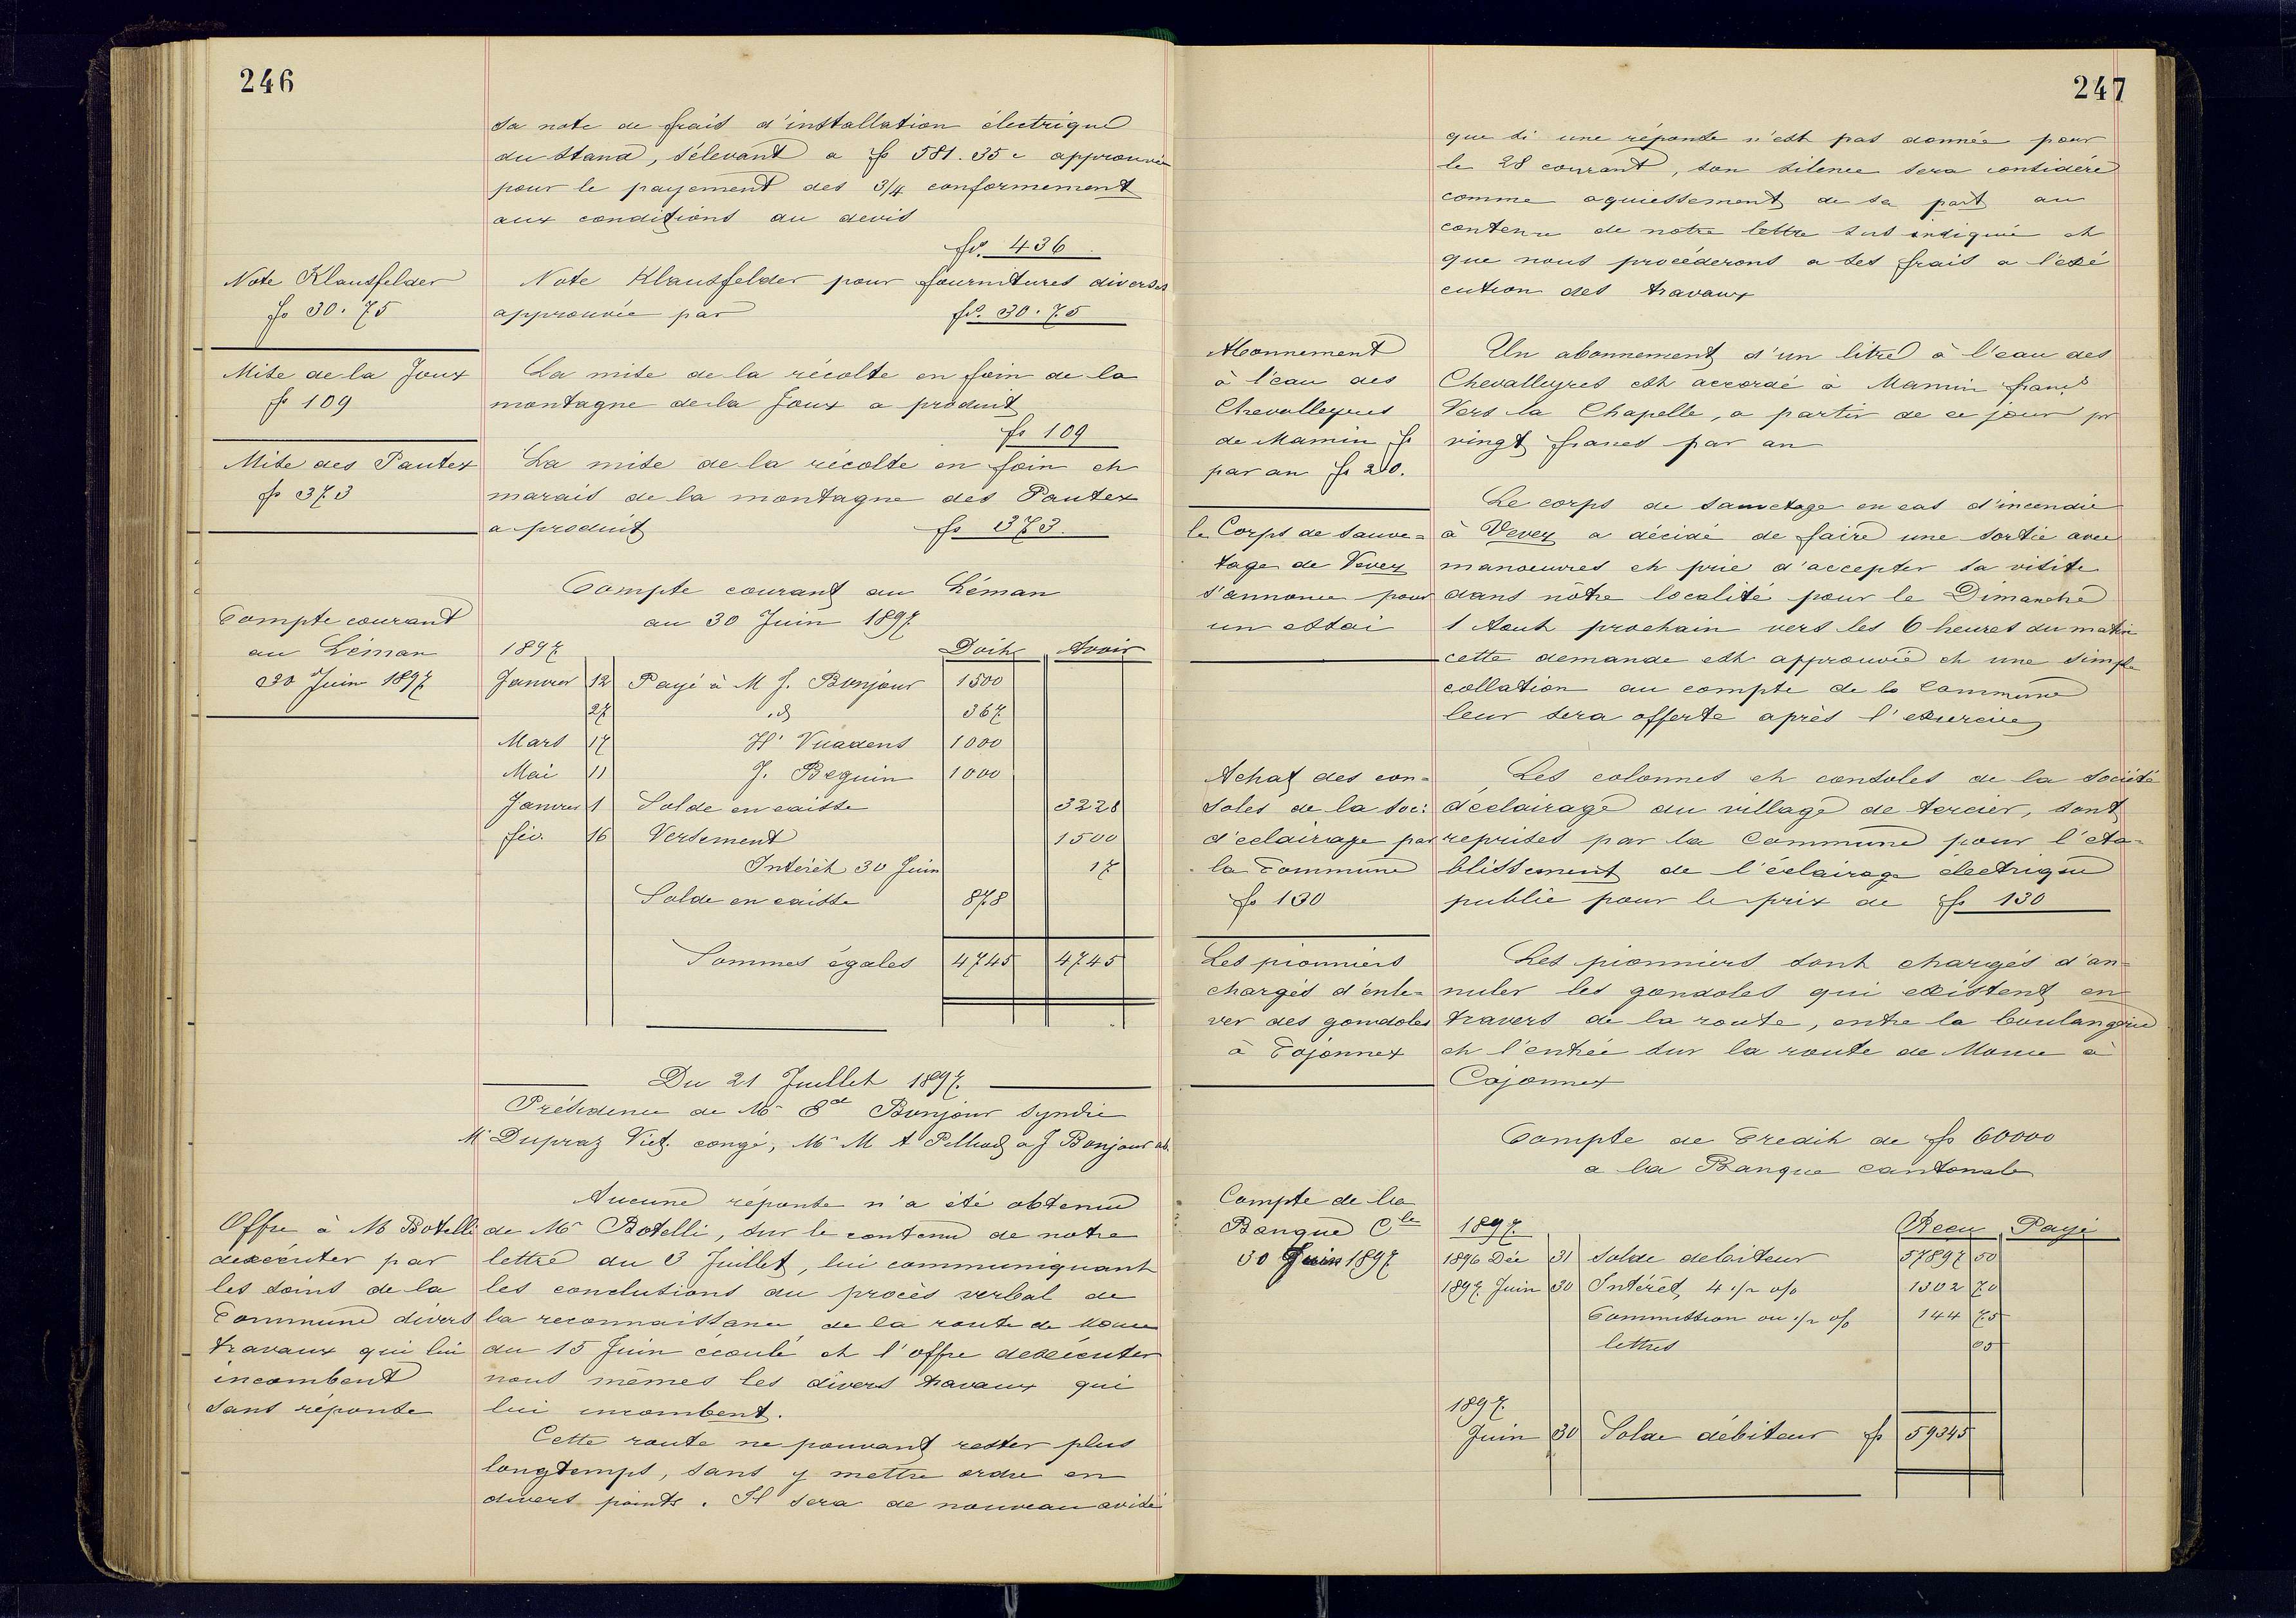 246
sa note de frais d'installation électrique
du Stand, s'élevant a fs 581.35 c approuvée
pour le payement des 3/4 conformement
aux conditions du devis
fr. 436
Note Klausfelder
fs 30.75
Note Klausfelder pour fournitures diverses
approuvée par fr. 30.75
Mise de la Joux
fs 109
La mise de la récolte en foin de la
montagne de la Joux a produit
fs 109
Mise des Pautex
fs 373
La mise de la récolte en foin et
marais de la montagne des Pautex
a produit fs 373.
Compte courant
au Léman
30 Juin 1897
Compte courant au Léman
au 30 Juin 1897
1897 Doit Avoir
Janvier 12 Payé à M J. Bonjour 1500
27 id 367
Mars 17 Hi Vuadens 1000
Mai 11 J. Beguin 1000
Janvier 1 Solde en caisse 3228
fév. 16 Versement 1500
Intérêt 30 Juin 17
Solde en caisse 878
Sommes égales 4745 4745
Du 21 Juillet 1897.
Présidence de Mr Ed Bonjour Syndic
Mr Dupraz Vict. congé, Mr M A Pilliod a J Bonjour ab.
Offre à M Botelli
dexécuter par
les soins de la
Commune divers
travaux qui lui
incombent
sans réponse
Aucune réponse n'a été obtenue
de Mr Botelli, sur le contenu de notre
lettre du 3 Juillet, lui communiquant
les conclusions du procès verbal de
la reconnaissance de la route de Moue
du 15 Juin écoulé et l'offre dexécuter
nous mêmes les divers travaux qui
lui incombent.
Cette route ne pouvant rester plus
longtemps, sans y mettre ordre en
divers points. Il sera de nouveau avisé
247
que si une réponse n'est pas donnée pour
le 28 courant, son silence sera considéré
comme aquiessement de sa part au
contenu de notre lettre sus indiquée et
que nous procéderons a ses frais a l'exé
cution des travaux
Abonnement
à l'eau des
Chevalleyres
de Mamin fs
par an fs 20.
Un abonnement d'un litre à l'eau des
Chevalleyres est accordé à Mamin francs
Vers la Chapelle, a partir de ce jour pr
vingt francs par an
le Corps de Sauve=
tage de Vevey
s'annonce pour
un essai
Le corps de sauvetage en cas d'incendie
à Vevey a décidé de faire une sortie avec
manoeuvres et prie d'accepter sa visite
dans nôtre localité pour le Dimanche
1 Aout prochain vers les 6 heures du matin
cette demande est approuvée et une simple
collation au compte de la Commune
leur sera offerte après l'exercice
Achat des con=
soles de la Soc:
d'eclairage par
la Commune
fs 130
Les colonnes et consoles de la Société
déclairage du village de tercier, sont
reprises par la Commune pour l'éta=
blissement de l'éclairage électrique
public pour le prix de fs 130
Les pionniers
chargés d'enle=
ver des gondoles
à Cojonnex
Les pionniers sont chargés d'an=
nuler les gondoles qui existent en
travers de la route, entre la boulangerie
et l'entrée sur la route de Moue à
Cojonnex
Compte de Credit de fs 60000
a la Banque cantonale
Compte de la
Banque Cle
30 Juin 1897
1897. Recu Payé
1896 Déc 31 Solde debiteur 57897 50
1897 Juin 30 Intérêt 4 1/2 o/o 1302 70
Commission ou 1/2 o/o 144 75
lettres 05
1897.
Juin 30 Solde débiteur fs 59345